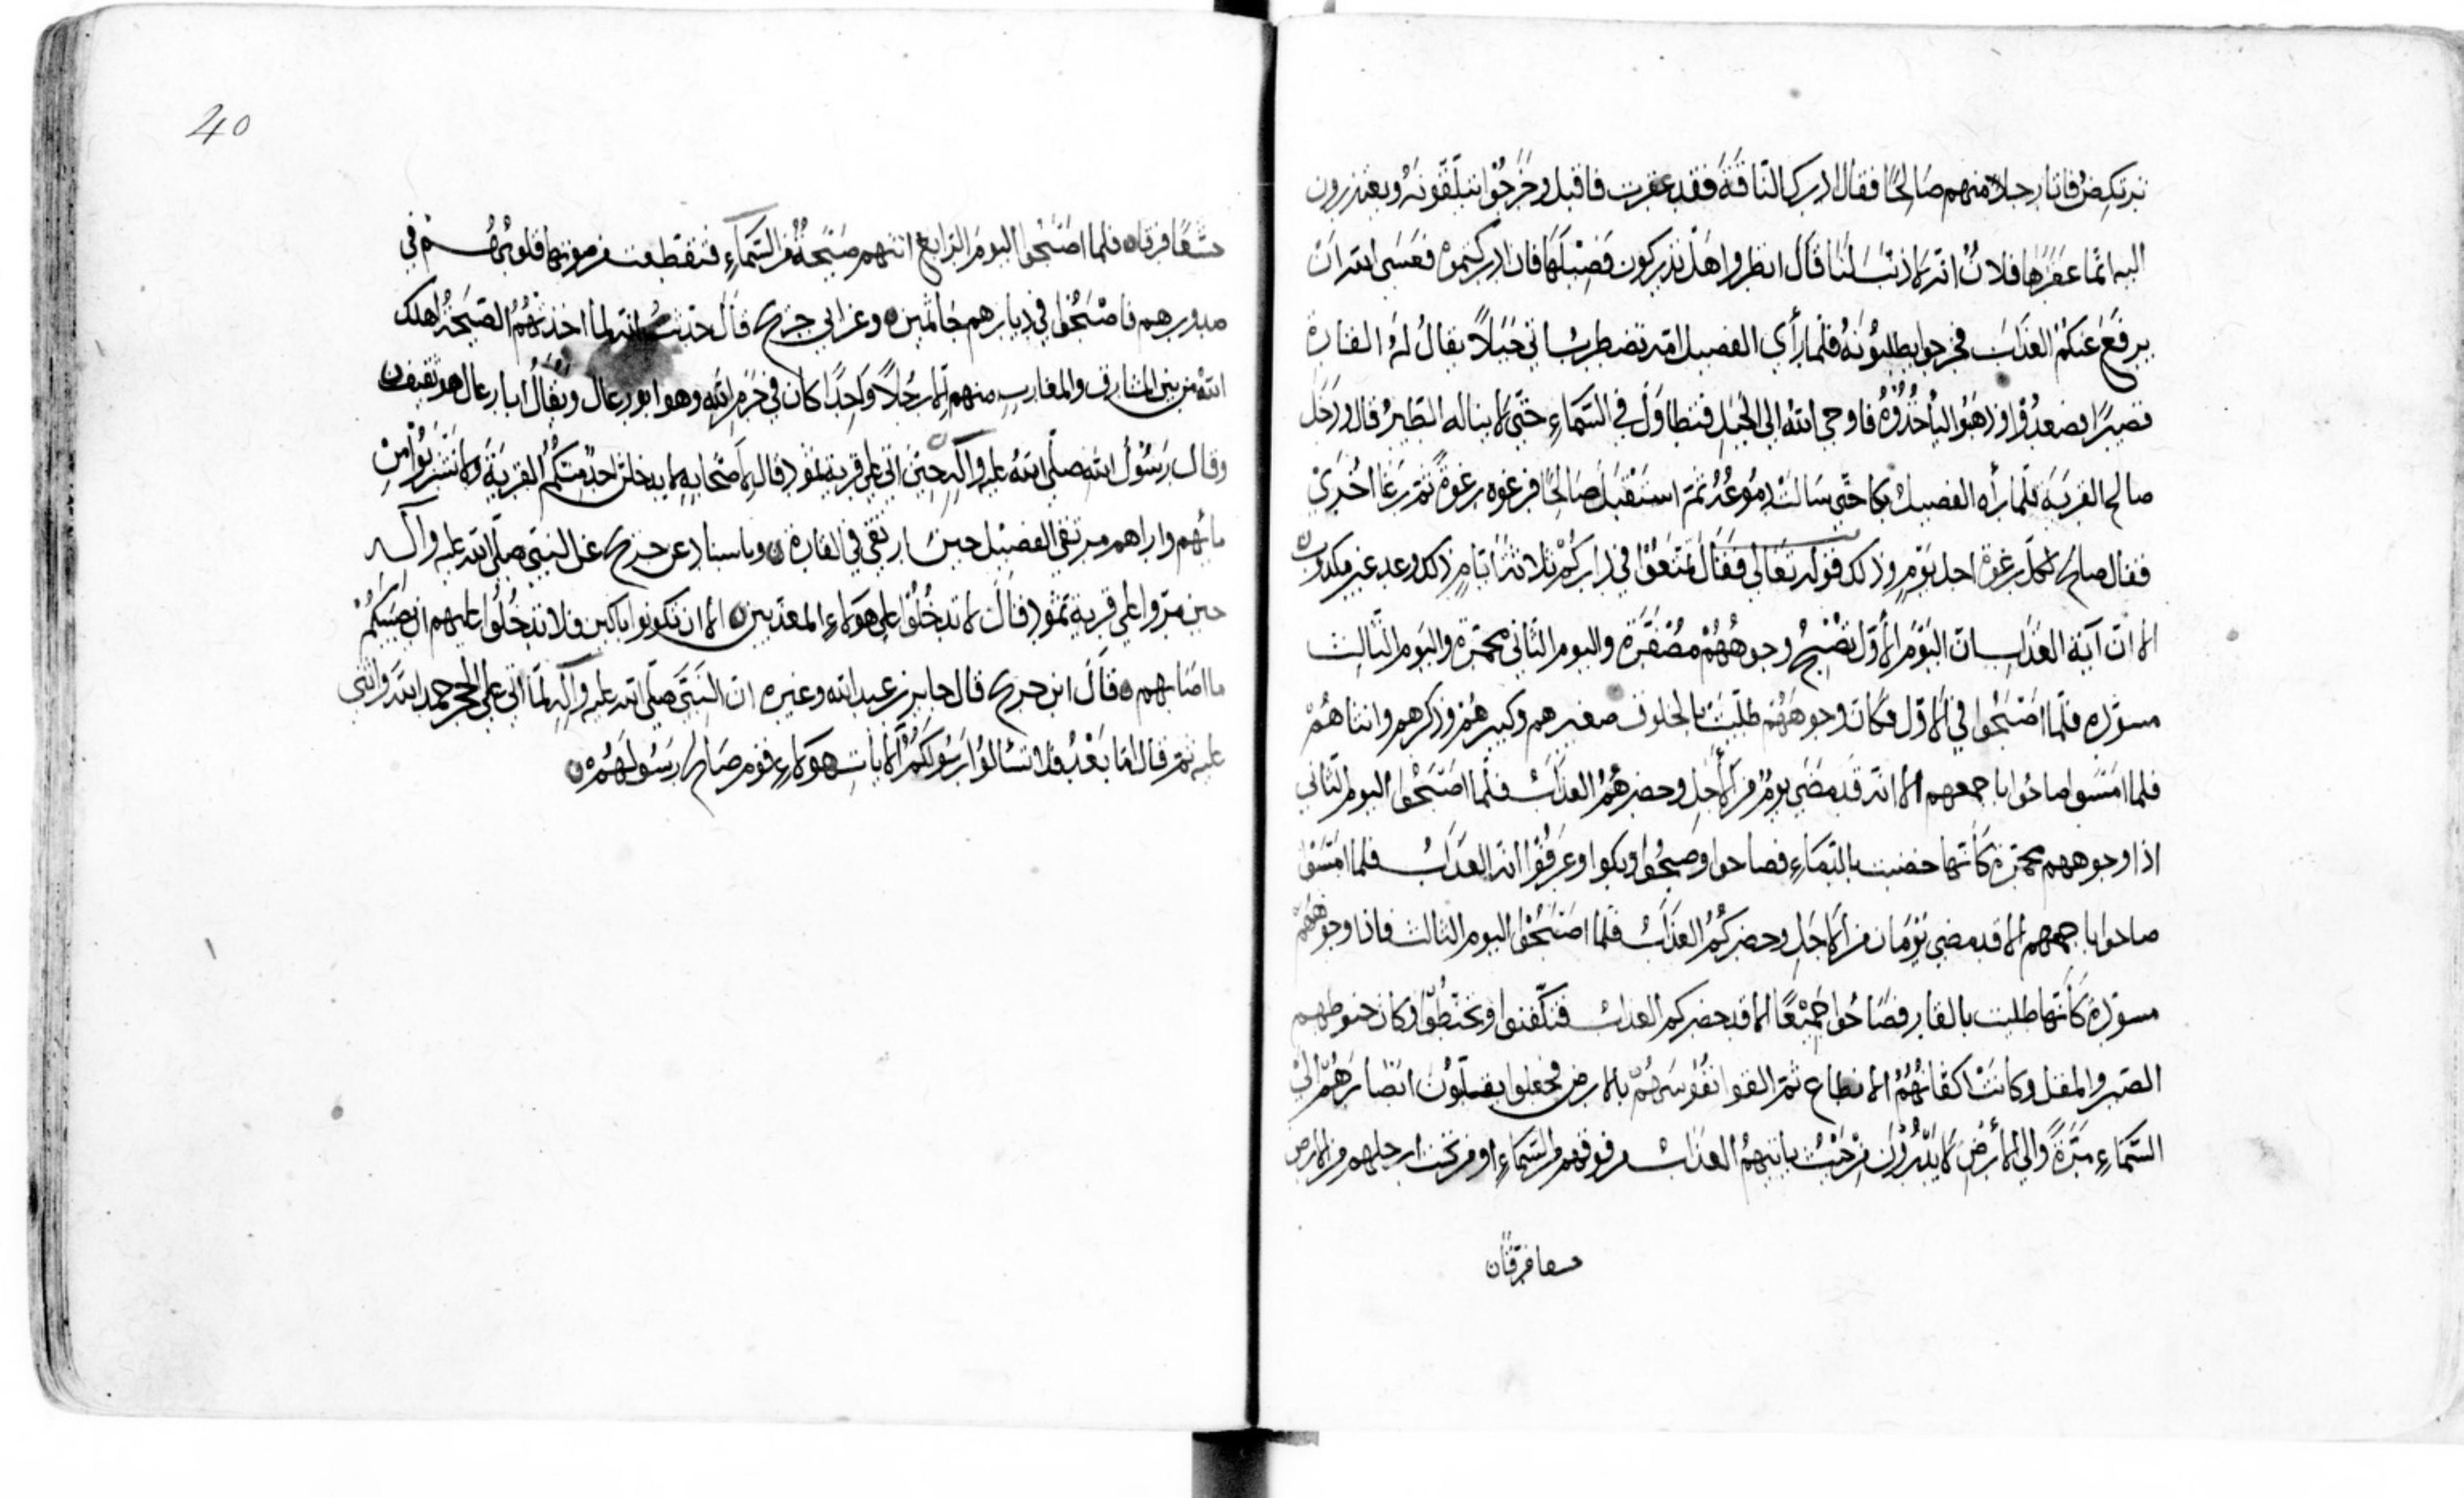 يرتكض فاتا رجلا منهم صَالِحًا فقال ادرك النّاقةَ فقد عقرت فاقبل وخَرَجُوْا يتلقّونهُ ويعتذرون
اليه انّما عقرَها فلانٌ انّه لا ذنبَ لنَا قَال انظروا هَل تدركون فَصِيْلَهَا فان ادركتموْه فعَسَى الله اَنْ
يرفَعَ عَنكمُ العَذَابَ فخرجوا يطلبوُنَهُ فلمّا رأى الفصيل امّه تضطربُ اتى جَبَلاً يقالُ لهُ القارة
قصيرًا فصعدُ وذهَبُوا ليأخُذُوْهُ فاوحى اللهُ الى الجَبَلِ فتطاوَلَ في السَّمَاءِ حتّى لا يناله الطّيرُ قال ودَخَل
صالح القريَةَ فلمّا رأه الفصيلُ بكا حتّى سَالتْ دمُوعُهُ ثمّ استَقْبَلَ صَالِحًا فرغوه رغوةً ثمّ رَغَا اُخْرَيْ
فقال صالح لكلّ رغوة اجل يَوْمٍ وذلك قوله تعَالى فقَالَ تمَتّعُوْا فِي دَارِكُمْ ثلاثةَ ايّامٍ ذلك وعد غير مكذوب
الا انّ آيَة العَذابِ انّ اليَوْمَ الأوّل تُصْبِحُ وجوههُمْ مُصْفَرّة واليوم الثّاني محمّرة واليَوم الثّالث
مسوّدة فلمّا اصْبَحُوا في الاوّل فكان وجوهَهُمْ طليَتْ بالخلوف صغيرهم وكبيرهُمْ وذكرهم وانثاهُمْ
فلما امسَوا صاحُوا باجمعهم الا انّه قد مَضَى يَوْمٌ من الأجَلِ وحضرهُمُ العَذابُ فلمّا اصْبَحُوا اليوم الثّاني
اذا وجوههم محمّرة كانّها خضبت بالدّمَاءِ فصاحوا وضجّوا وبكوا وعرَفُوْا انّه العَذابُ فلما امْسَوْا
صاحوا باجمعهم الا قد مضى يَوْمَان من الاجَلِ وحضركُمُ العَذابُ فلمّا اصْبَحُوا اليوم الثالث فاذا وجوههُمْ
مسوّدة كَأنّها طليت بالقار فصَاحُوا جَمِيْعًا الا قد حضركم العذابُ فتكفّنوا وتحَنّطُوْا وكان حنوطهم
الصّبر والمقل وكانَتْ اكفانُهُمُ الانطاع ثمّ القوا نفُوْسَهُمْ بالارض فجعلوا يقلّبُوْن ابْصَارَهُمْ اليْ
السَّمَاءِ مَرّةً والى الأرْضِ لا يَدْرُوْنَ مِنْ حَيْثُ يأتيهِمُ العذابُ من فوقهم من السَّمَاءِ او من تحْت ارجلهم من الارض
خسفا فرقًا ن
40
خسفا فرقا ن فلمّا اصْبَحُوا اليومَ الرابعَ اتتهم صَيْحَةٌ من السّمَاءِ فتقطّعت من صوتها قلوبُهُمْ في
صدورهم فاصْبَحُوا في ديارهم جَاثمين ن وعن ابي جريح قَالَ حدّثتُ انّه لمّا اخذتْهُمُ الصّيحَةُ اهلك
اللهُ من بين المشارق والمغارب منهم الّا رجُلاً وَاحِدًا كان في حَرَمِ اللهِ وهوا ابو رغال ويقَالُ ابا رغال هو ثقيف ن
وقال رَسُوْلُ اللهِ صلّى اللهُ عليه وآلِه حِيْن اتى على قرية ثمُود قال لأصحابه لا يدخلنّ احدٌ منكُمُ القريَةَ ولا تشْرَبُوْا مِنْ
مائهم واراهم مرتقى الفصيْل حينَ ارتقى في القارة ن وباسناد عن جريح عَن النّبي صلّى الله عليه وآله
حين مرّوا على قرية ثمُود قَالَ لا تدخُلُوْا على هؤلاءِ المعذّبين ن الّا ان تكونوا باكين فلا تدخُلُوا عليهم ان يصيبَكُمْ
ما اصَابهم ن قَالَ ابن جريح قال جابر بن عبد الله وغيره انّ النّبيَّ صلّى الله عليه وآلِه لمّا اتى على الحجر حمد اللهَ واثنى
عليه ثمّ قال امّا بَعْدُ فلا تسْالُوْا رَسُوْلَكُمُ الأيات هؤلاء قوم صَالح رَسُولهُمْ ن